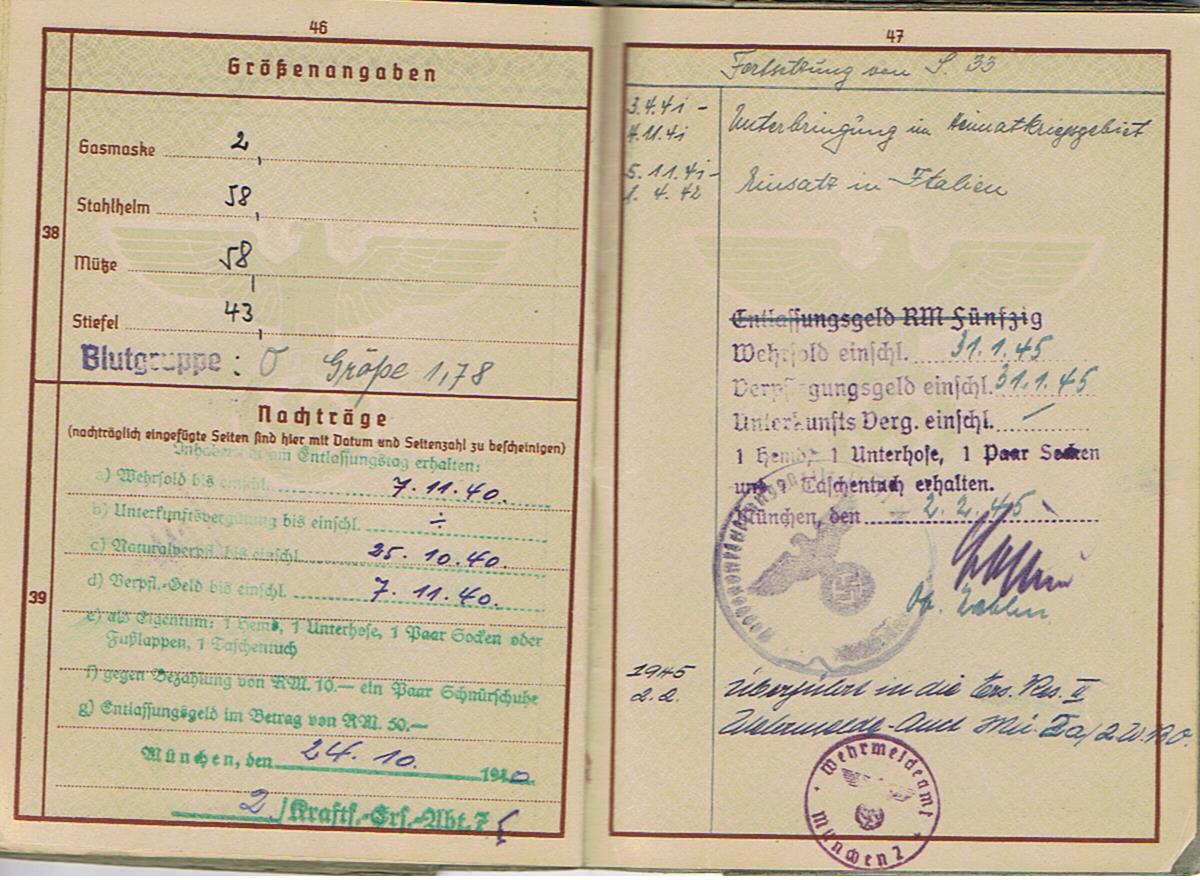 46
Größenangaben
38
Gasmaske 2,
Stahlhelm 58,
Mütze 58,
Stiefel 43,
Blutgruppe: O Größe 1,78
Nachträge
(nachträglich eingefügte Seiten sind hier mit Datum und Seitenzahl zu bescheinigen)
39
am Entlassungstag erhalten:
a) Wehrsold bis einschl. 7.11.40.
b) Unterkunftsvergütung bis einschl. ÷
c) Naturalverpfl. bis einschl. 25.10.40.
d) Verpfl.-Geld bis einschl. 7.11.40.
e) als Eigentum: 1 Hemd, 1 Unterhose, 1 Paar Socken oder
Fußlappen, 1 Taschentuch
f) gegen Bezahlung von RM. 10.— ein Paar Schnürschuhe
g) Entlassungsgeld im Betrag von RM. 50.—
München, den 24. 10. 1940
2/Kraftf.-Ers.-Abt. 7
47
Fortsetzung von S. 33
3.4.41 -
4.11.41
Unterbringung im Heimatkriegsgebiet
5.11.41 -
1.4.42
Einsatz in Italien
Entlassungsgeld RM Fünfzig
Wehrsold einschl. 31.1.45
Verpflegungsgeld einschl. 31.1.45
Unterkunfts Verg. einschl. —
1 Hemd, 1 Unterhose, 1 Paar Socken
und 1 Taschentuch erhalten.
München, den 2.2.45
1945
2.2.
Überführt in die Ers. Res. II
Wehrmeldeamt
München 2